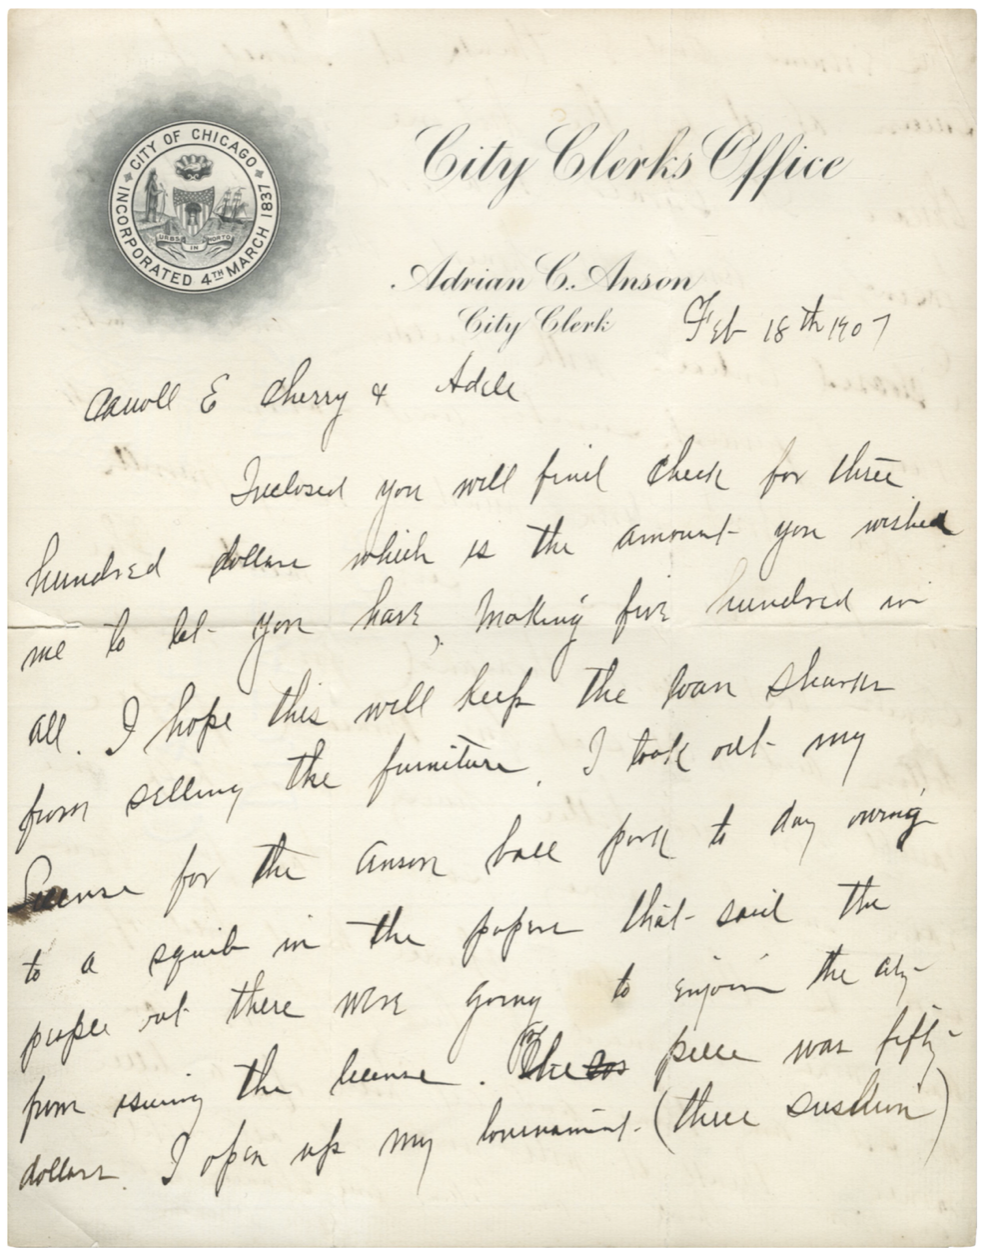 CITY OF CHICAGO
INCORPORATED 4TH MARCH 1837
URBS IN HORTO
City Clerks Office
Adrian C. Anson
City Clerk
Feb 18th 1907
Carroll E Cherry & Adele
Inclosed you will find check for three
hundred dollars which is the amount you wished
me to let you have, making five hundred in
all. I hope this will keep the loan sharks
from selling the furniture. I took out my
license for the Anson ball park to day owing
to a squib in the papers that said the
people out there were going to enjoin the city
from issuing the license. The price was fifty
dollars. I open up my tournament (three cushion)